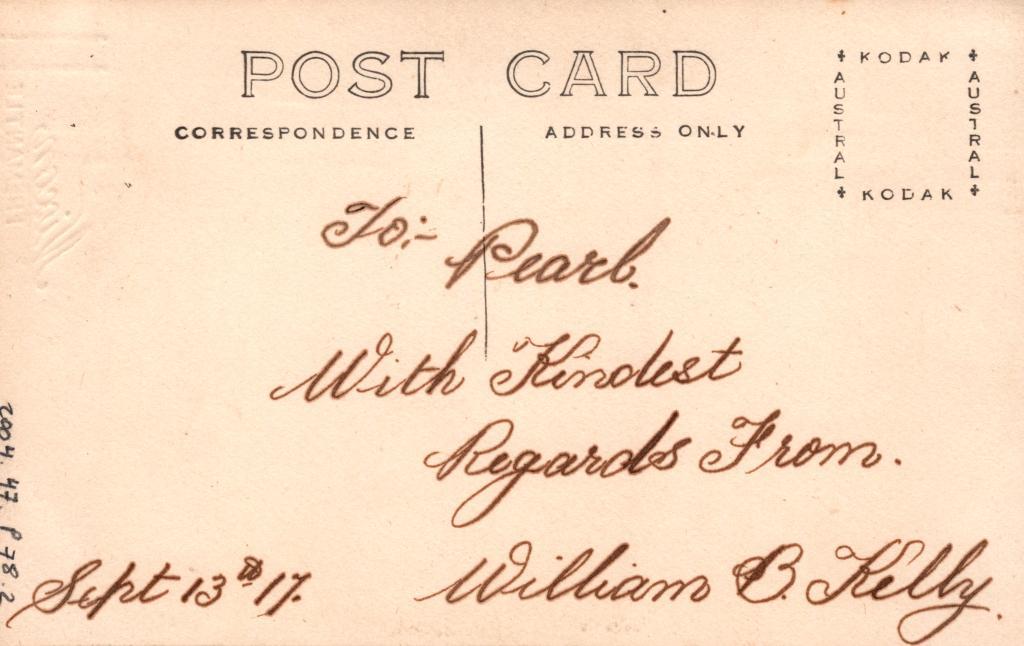 POST CARD
CORRESPONDENCE
ADDRESS ONLY
KODAK
AUSTRAL
AUSTRAL
KODAK
To:-
Pearl.
With Kindest
Regards From.
William B. Kelly.
Sept 13th 17.
2004.47.P78.2